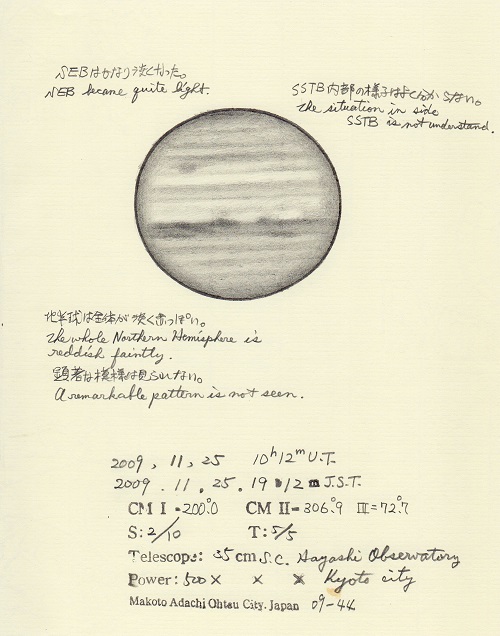 SEBはかなり淡くなった。
SEB became quite light.
SSTB内部の様子はよく分からない。
the situation in side
SSTB is not understand.
北半球は全体が淡く赤っぽい。
the whole Northern Hemisphere is
reddish faintly.
顕著な模様は見られない。
A remarkable pattern is not seen.
2009, 11, 25 10h12m U.T.
2009. 11. 25. 19h12m J.S.T.
CM I = 200.°0 CM II = 306.°9 III = 72.°7
S: 2/10 T: 5/5
Telescope: 35 cm S.C. Hayashi Observatory
Power: 500× × × Kyoto city
Makoto Adachi Ohtsu City. Japan 09-44